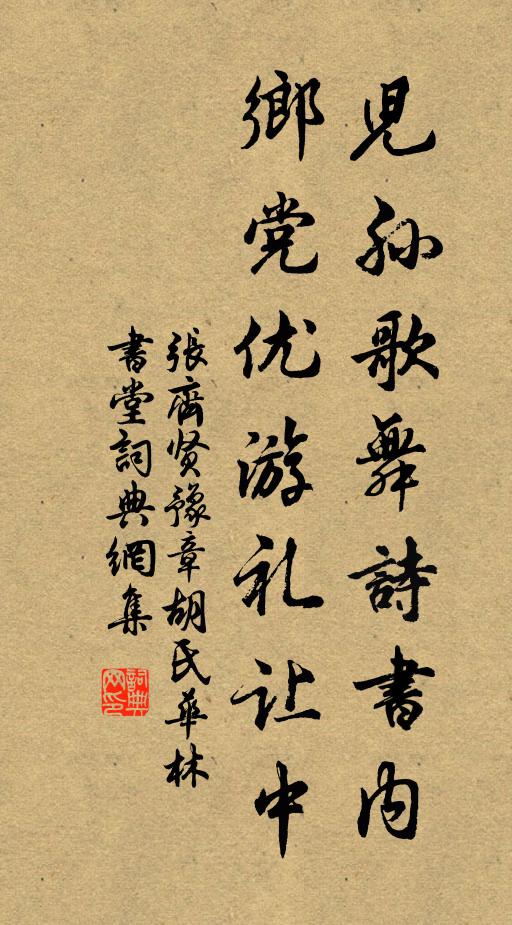 児孙歌舞詩書内
鄉党优游礼让中
張齊贤豫章胡氏華林
書堂詞典網集
詞典
网印